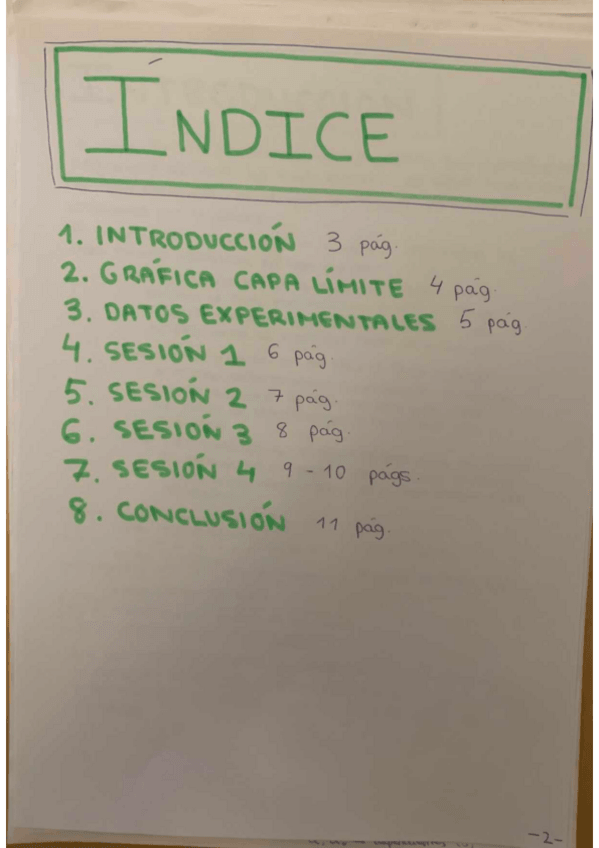 ÍNDICE
1. INTRODUCCIÓN 3 pág.
2. GRÁFICA CAPA LÍMITE 4 pág.
3. DATOS EXPERIMENTALES 5 pág.
4. SESIÓN 1 6 pág.
5. SESIÓN 2 7 pág.
6. SESIÓN 3 8 pág.
7. SESIÓN 4 9 - 10 págs.
8. CONCLUSIÓN 11 pág.
-2-